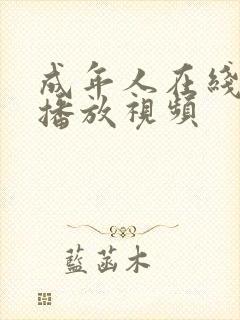 成年人在綫
播放視頻
藍菡木